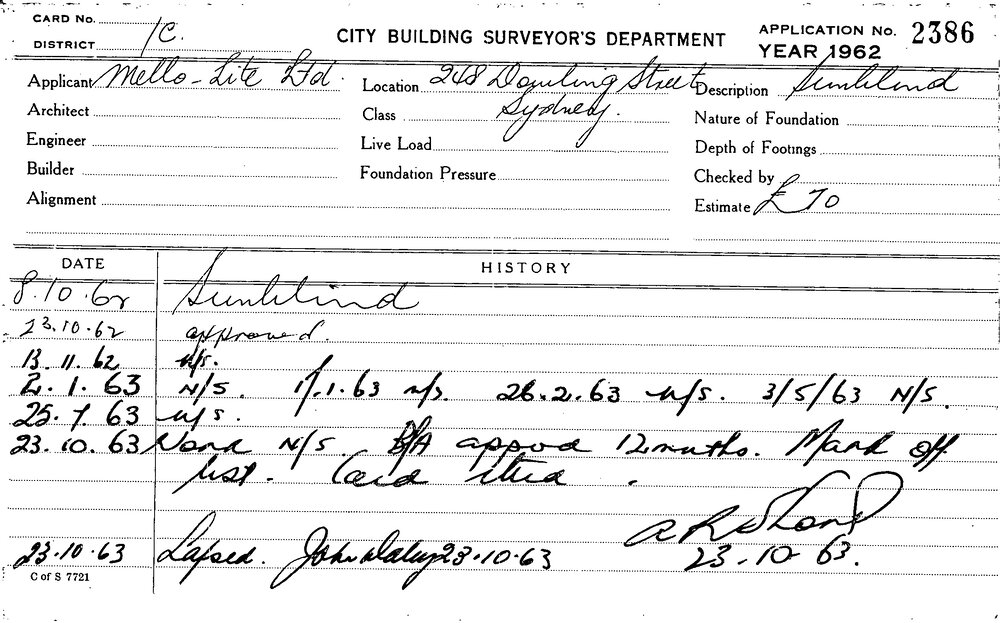 CARD No.
DISTRICT 1C.
CITY BUILDING SURVEYOR'S DEPARTMENT
APPLICATION No. 2386
YEAR 1962
Applicant Mello-Lite Ltd. Location 248 Dowling Street Description Sunblind
Architect Class Sydney. Nature of Foundation
Engineer Live Load Depth of Footings
Builder Foundation Pressure Checked by
Alignment Estimate £70
DATE HISTORY
8.10.62 Sunblind
23.10.62 approved.
13.11.62 N/S.
2.1.63 N/S. 17.1.63 N/S. 26.2.63 N/S. 3/5/63 N/S.
25.7.63 N/S.
23.10.63 Work N/S. B/A approd 12 months. Mark off
list. Card
23.10.63
23.10.63 Lapsed. John Daley 23.10.63
C of S 7721